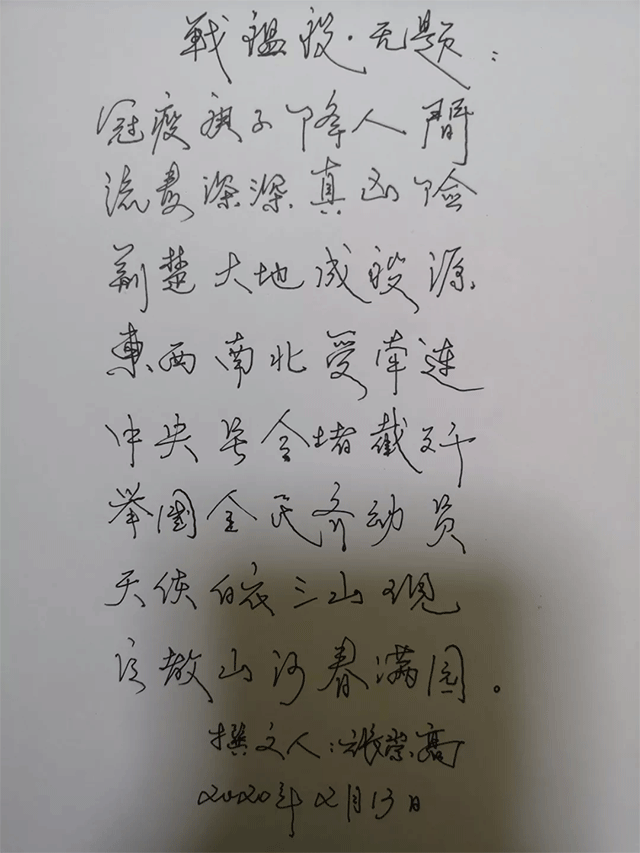 戰瘟疫·无题：
冠疫庚子降人間
流毒深深真凶险
荆楚大地成疫源
東西南北受牵連
中央号令堵截歼
举國全民齐动员
天使白衣三山现
言教山河春满园。
撰文人：張崇高
2020年2月13日